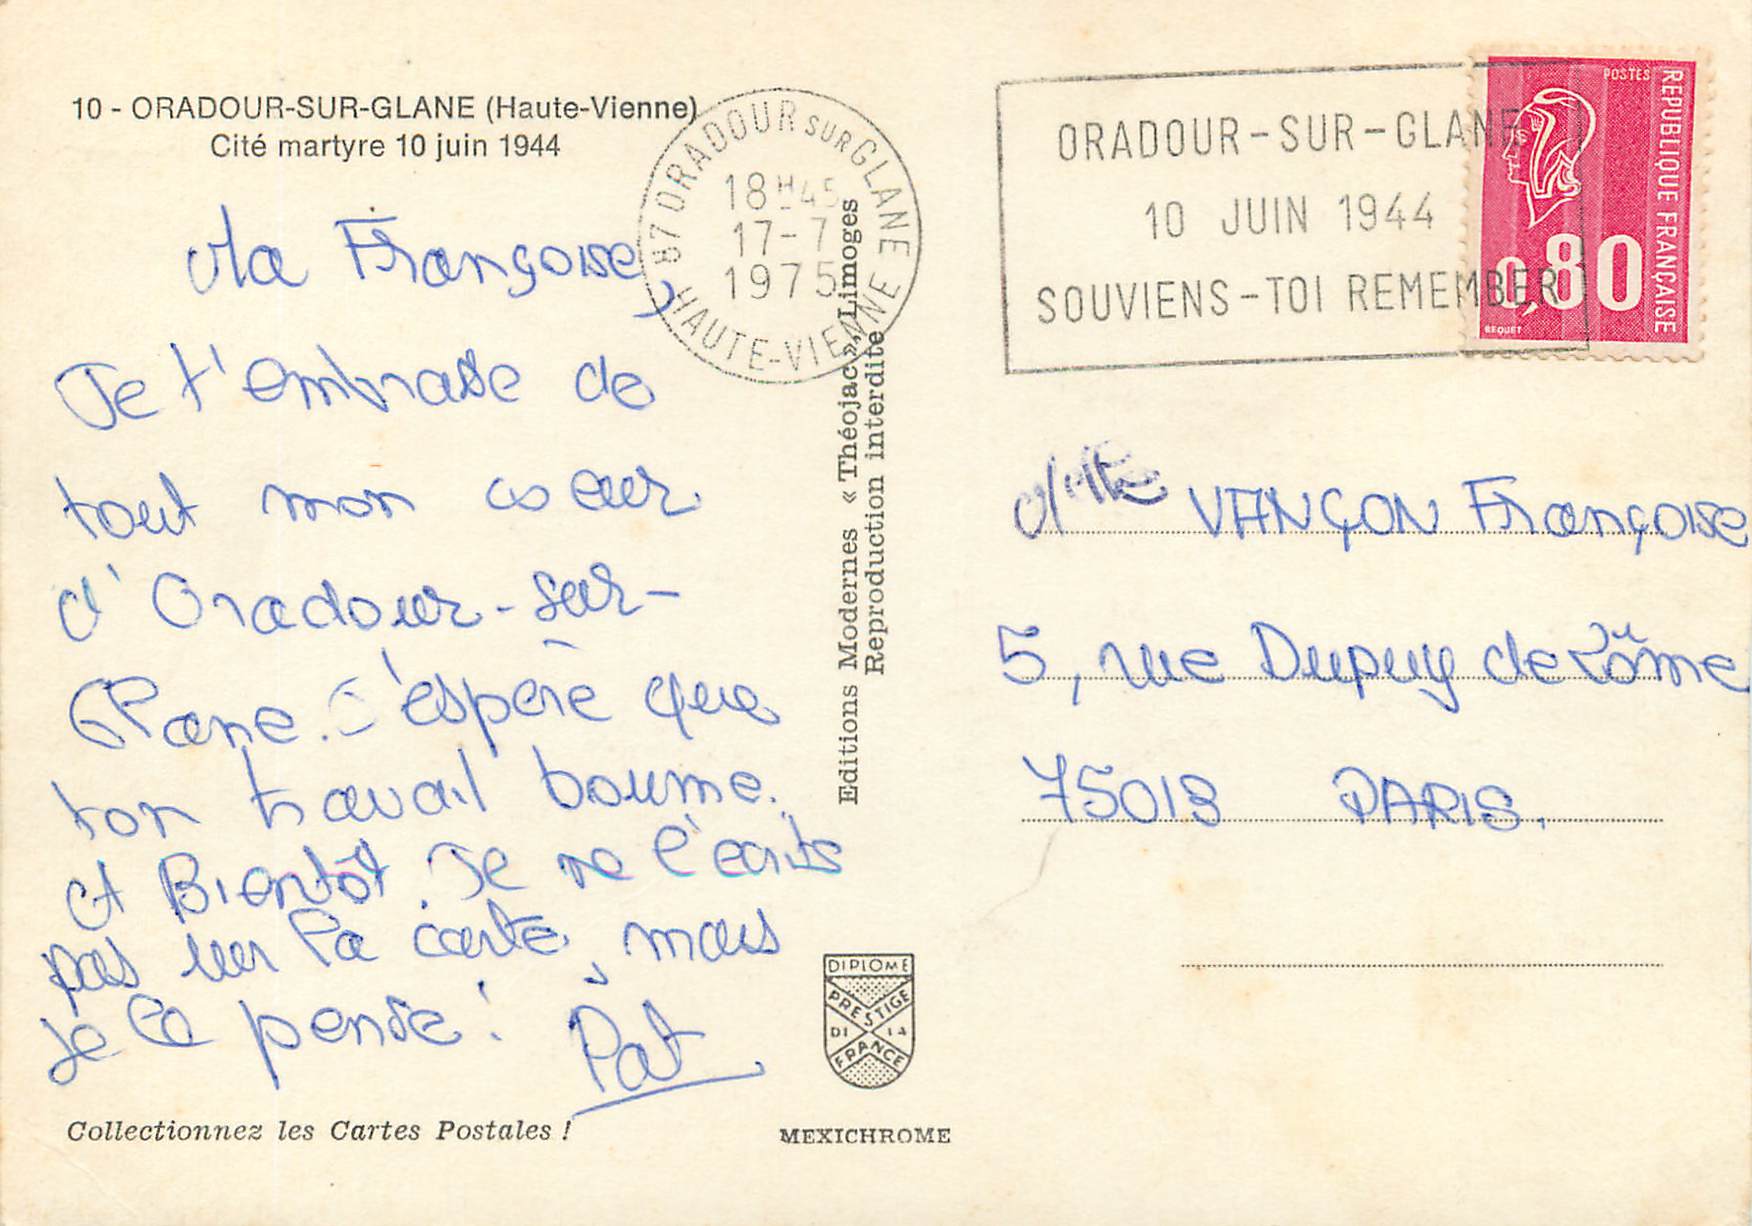 10 - ORADOUR-SUR-GLANE (Haute-Vienne)
Cité martyre 10 juin 1944
Ma Françoise,
Je t'embrasse de
tout mon coeur
d'Oradour-sur-
Glane. J'espère que
ton travail boume.
A Bientôt. Je ne l'écrits
pas sur la carte, mais
je le pense !
Pat
Collectionnez les Cartes Postales !
87 ORADOUR SUR GLANE
18H45
17-7
1975
HAUTE-VIENNE
Editions Modernes « Théojac », Limoges
Reproduction interdite
DIPLOME
PRESTIGE
DE LA
FRANCE
MEXICHROME
ORADOUR-SUR-GLANE
10 JUIN 1944
SOUVIENS-TOI REMEMBER
POSTES
REPUBLIQUE FRANÇAISE
0,80
BEQUET
Mlle VANÇON Françoise
5, rue Dupuy de Lôme
75013 PARIS.